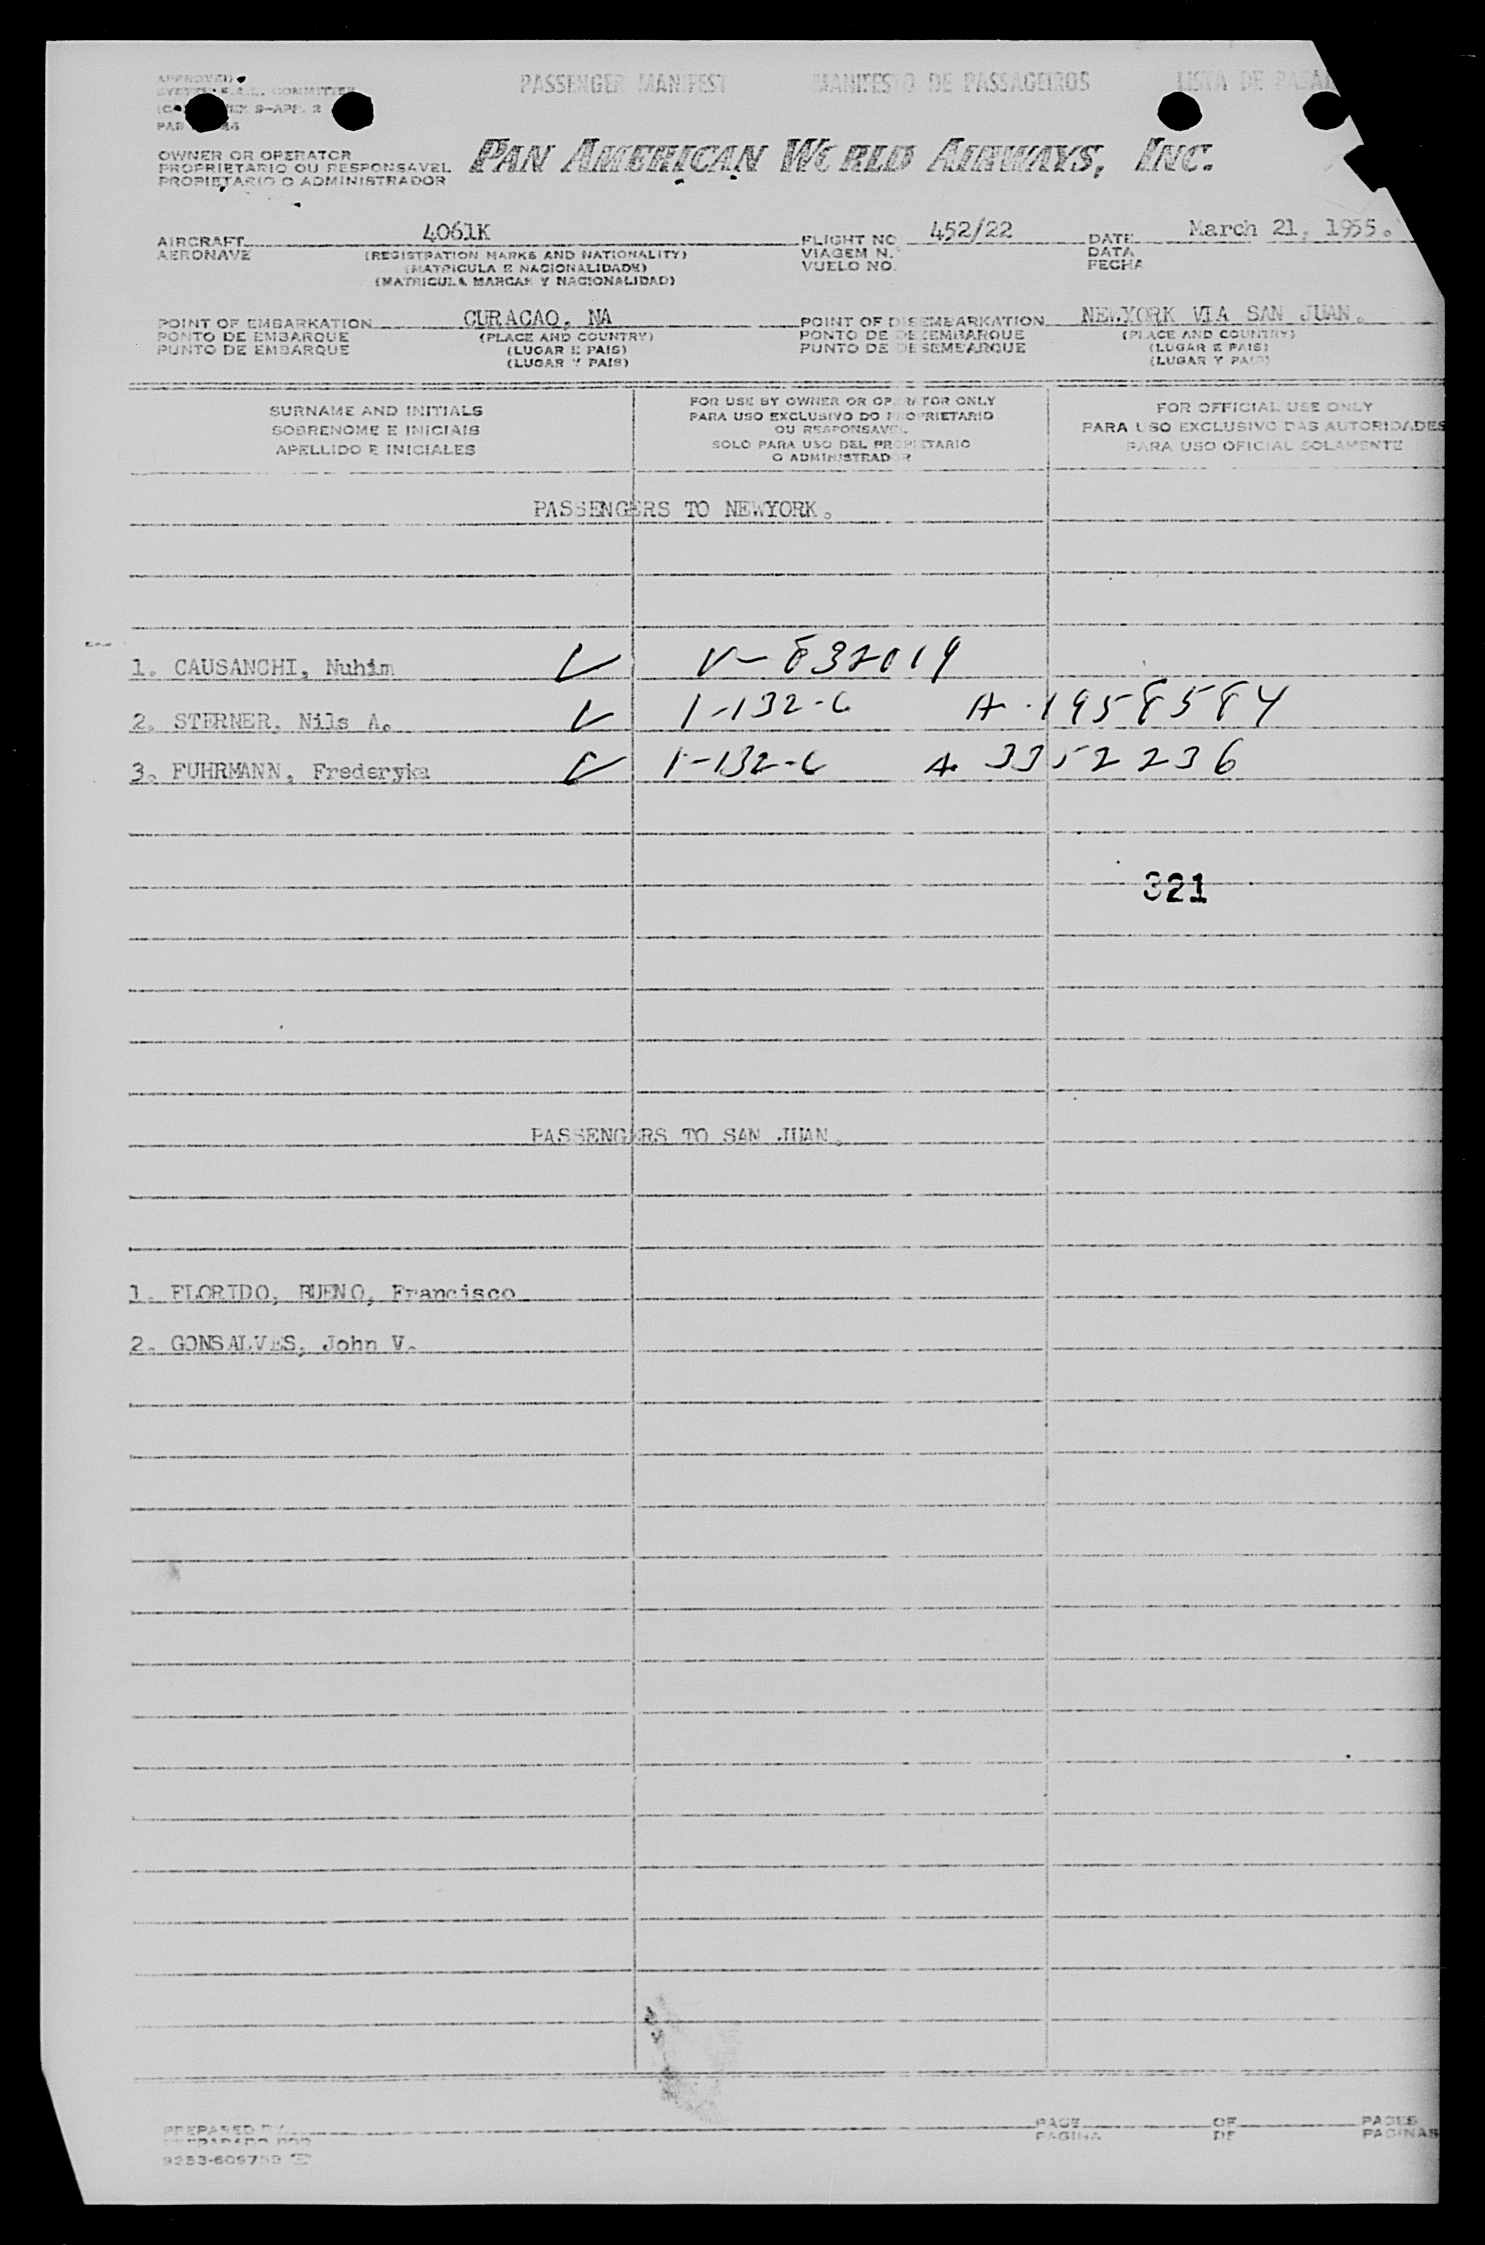 APPROVED
SYSTEM F.A.L. COMMITTEE
9-APP. 2
PASSENGER MANIFEST MANIFESTO DE PASSAGEIROS LISTA DE
OWNER OR OPERATOR
PROPRIETARIO OU RESPONSAVEL
PROPIETARIO O ADMINISTRADOR
PAN AMERICAN WORLD AIRWAYS, INC.
AIRCRAFT 4061K FLIGHT NO 452/22 DATE March 21, 1955.
AERONAVE (REGISTRATION MARKS AND NATIONALITY) VIAGEM N. DATA
(MATRICULA E NACIONALIDADE) VUELO NO. FECHA
(MATRICULA MARCAS Y NACIONALIDAD)
POINT OF EMBARKATION CURACAO, NA POINT OF DISEMBARKATION NEWYORK VIA SAN JUAN.
PONTO DE EMBARQUE (PLACE AND COUNTRY) PONTO DE DESEMBARQUE (PLACE AND COUNTRY)
PUNTO DE EMBARQUE (LUGAR E PAIS) PUNTO DE DESEMBARQUE (LUGAR E PAIS)
(LUGAR Y PAIS) (LUGAR Y PAIS)
SURNAME AND INITIALS
SOBRENOME E INICIAIS
APELLIDO E INICIALES
FOR USE BY OWNER OR OPERATOR ONLY
PARA USO EXCLUSIVO DO PROPRIETARIO
OU RESPONSAVEL
SOLO PARA USO DEL PROPIETARIO
O ADMINISTRADOR
FOR OFFICIAL USE ONLY
PARA USO EXCLUSIVO DAS AUTORIDADES
PARA USO OFICIAL SOLAMENTE
PASSENGERS TO NEWYORK.
1. CAUSANCHI, Nuhim V-832019
2. STERNER, Nils A. 1-132-6 A-1958584
3. FUHRMANN, Frederyka 1-132-6 A 3352236
321
PASSENGERS TO SAN JUAN.
1. FLORIDO, BUENO, Francisco
2. GONSALVES, John V.
PREPARED BY PAGE OF PAGES
PREPARADO POR PAGINA DE PAGINAS